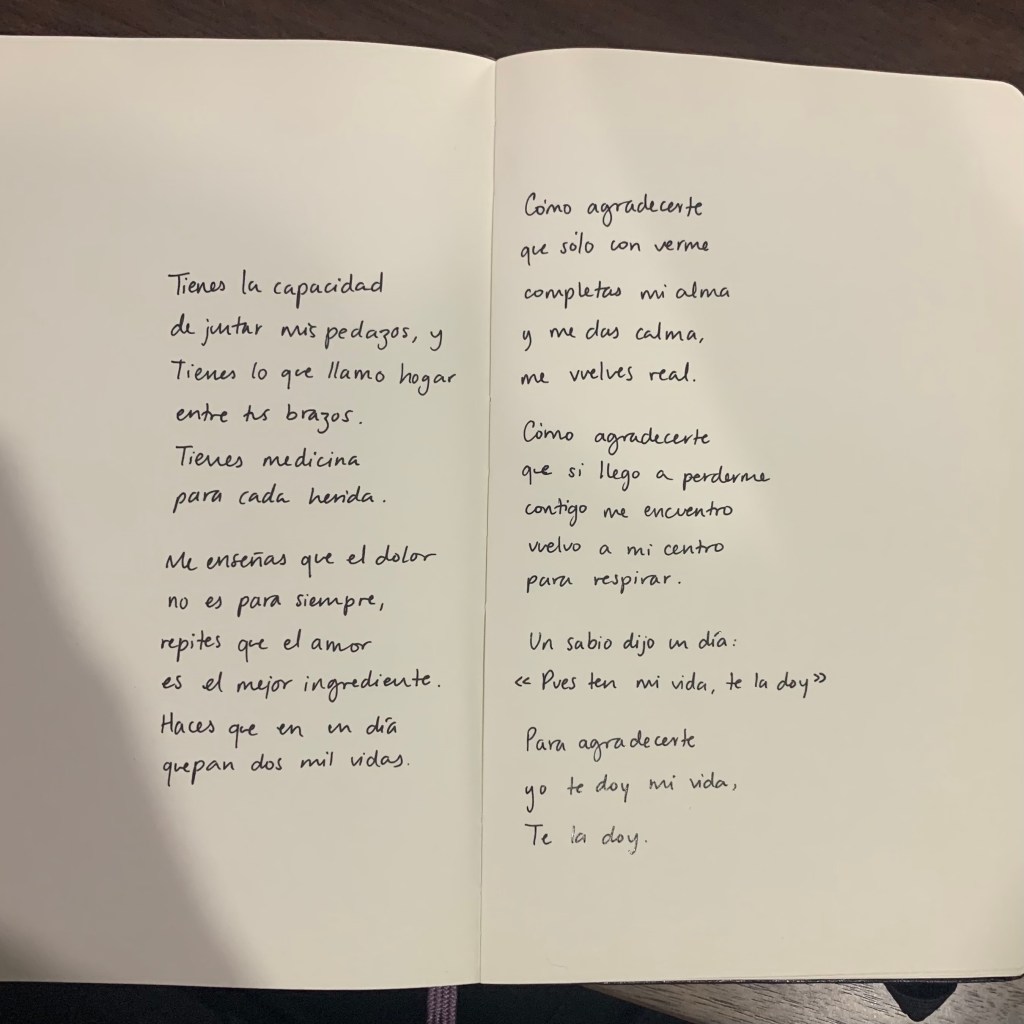 Tienes la capacidad
de juntar mis pedazos, y
Tienes lo que llamo hogar
entre tus brazos.
Tienes medicina
para cada herida.
Me enseñas que el dolor
no es para siempre,
repites que el amor
es el mejor ingrediente.
Haces que en un día
quepan dos mil vidas.
Cómo agradecerte
que sólo con verme
completas mi alma
y me das calma,
me vuelves real.
Cómo agradecerte
que si llego a perderme
contigo me encuentro
vuelvo a mi centro
para respirar.
Un sabio dijo un día:
«Pues ten mi vida, te la doy»
Para agradecerte
yo te doy mi vida,
Te la doy.